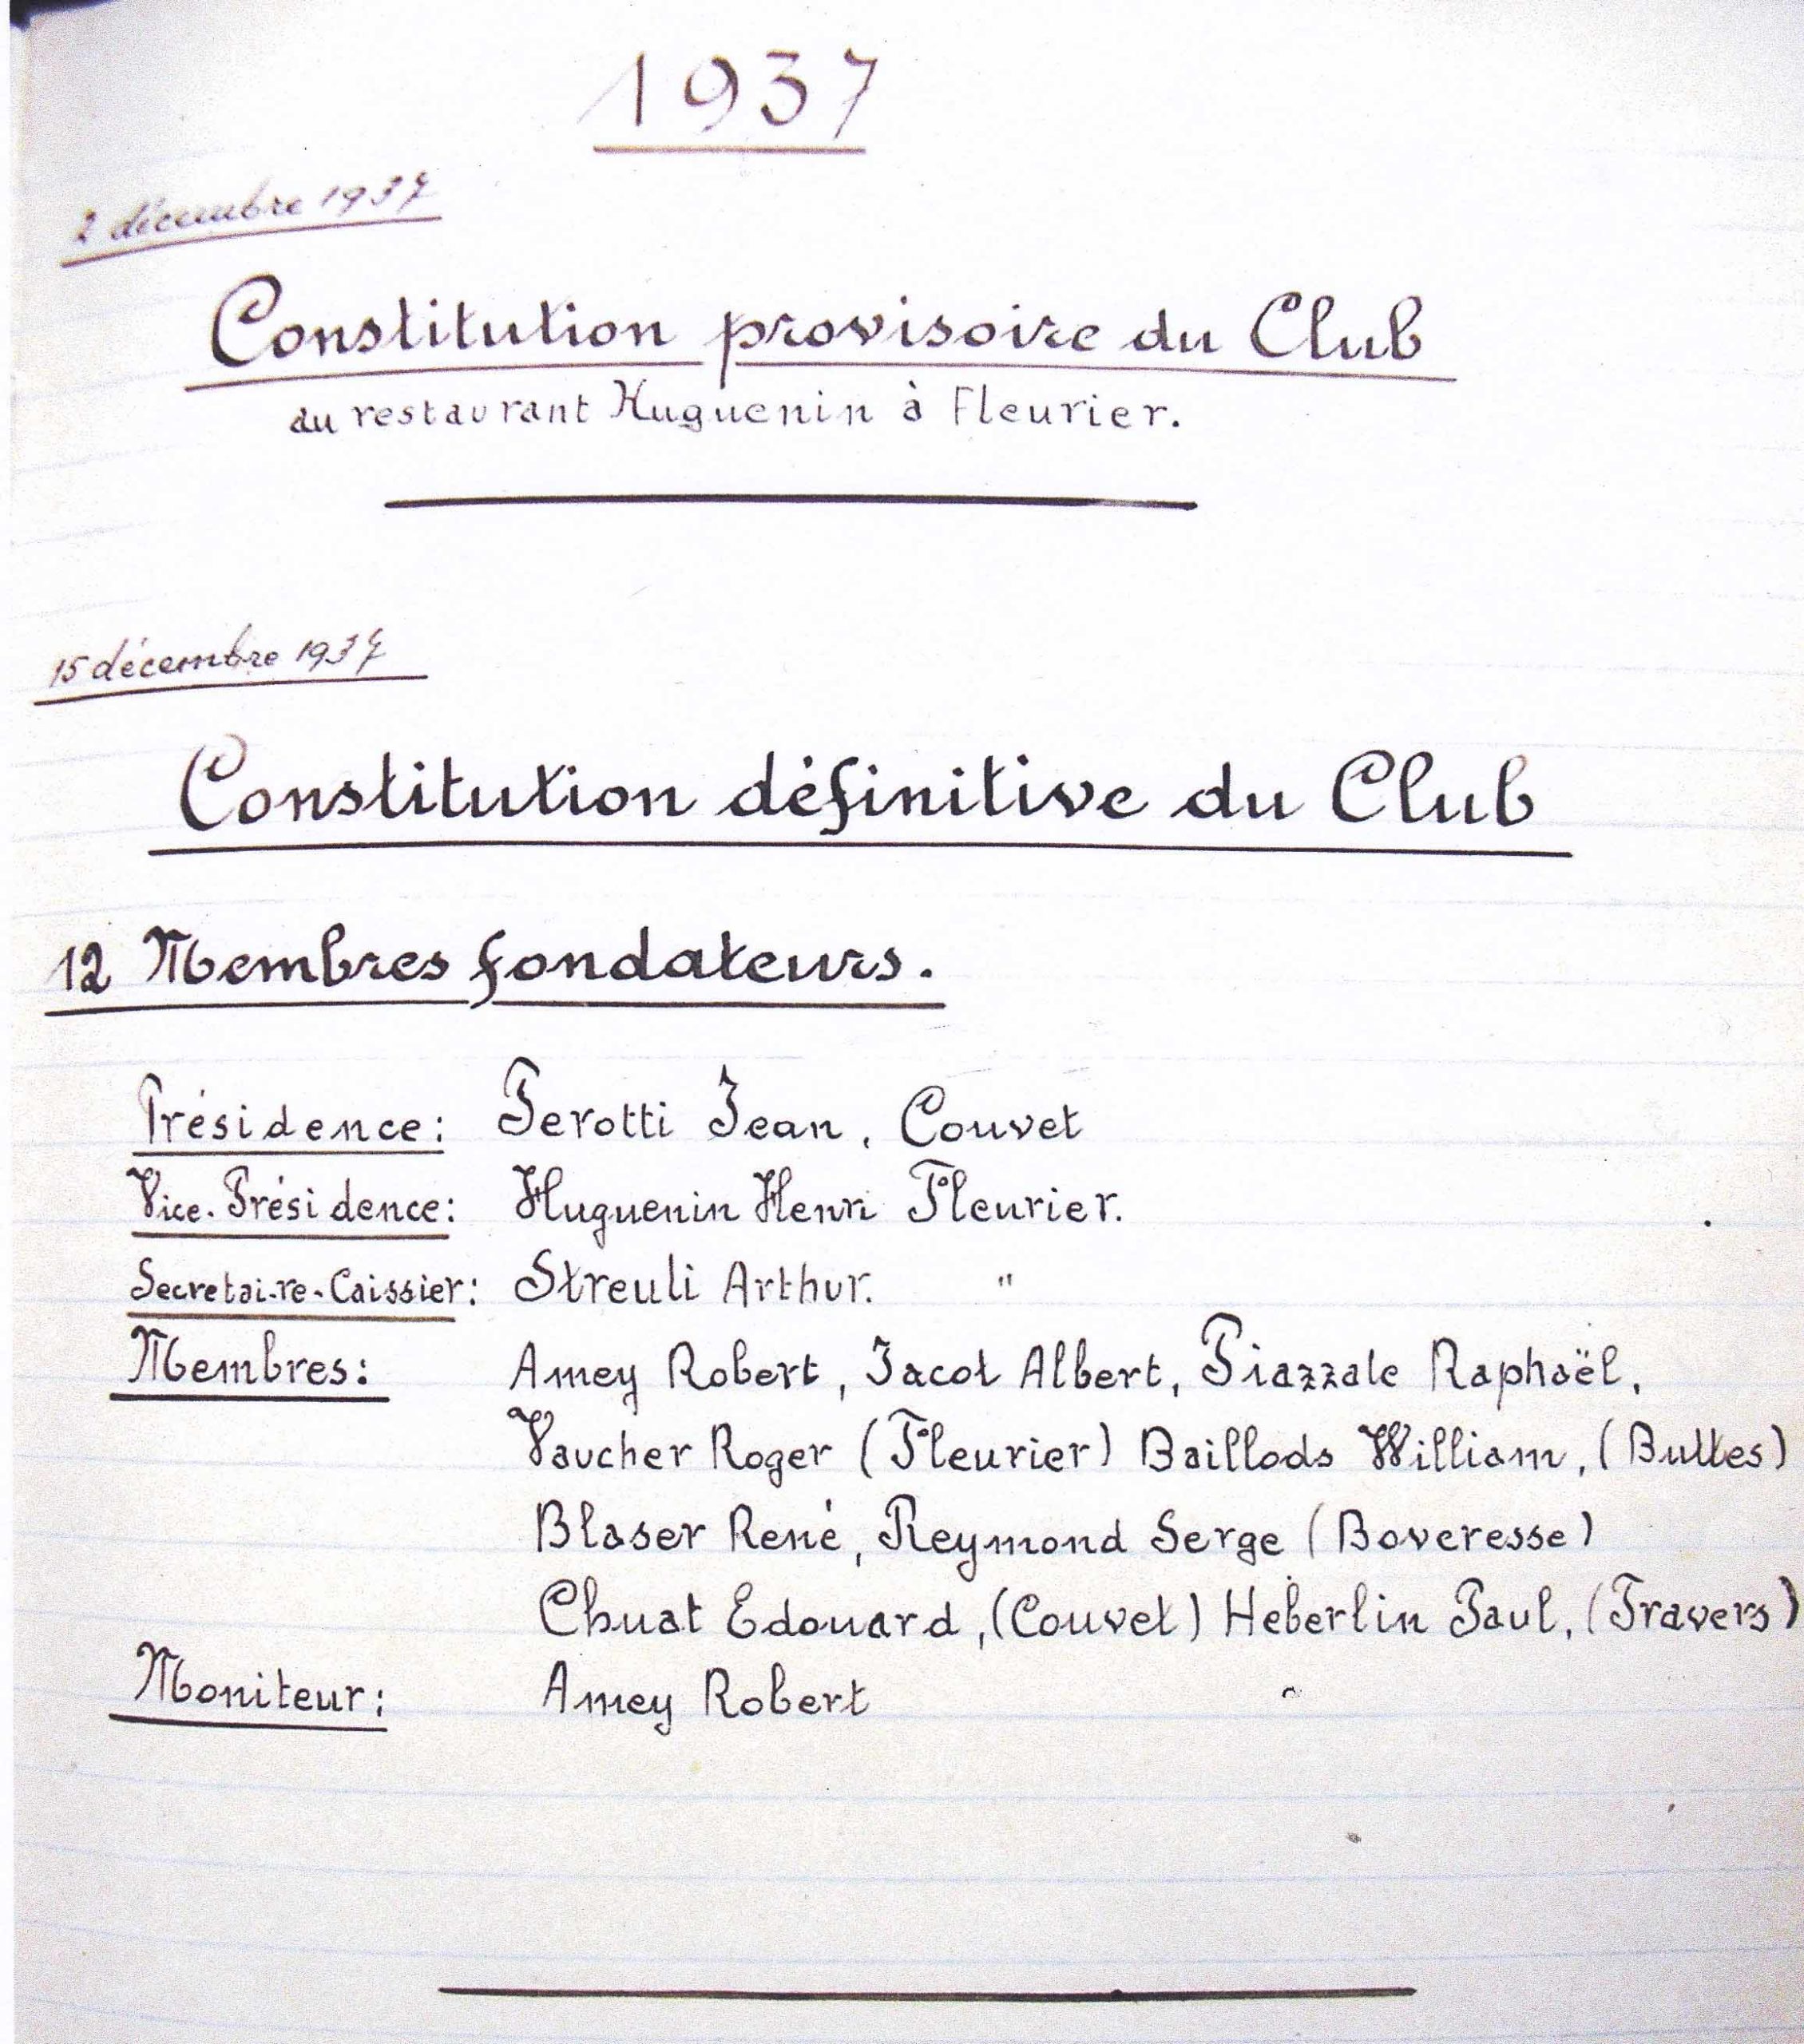 1937
2 décembre 1937
Constitution provisoire du Club
au restaurant Huguenin à Fleurier.
15 décembre 1937
Constitution définitive du Club
12 Membres fondateurs.
Présidence: Perotti Jean, Couvet
Vice-Présidence: Huguenin Henri Fleurier.
Secretai-re-Caissier: Streuli Arthur. "
Membres: Amey Robert, Jacot Albert, Piazzale Raphaël,
Vaucher Roger (Fleurier) Baillods William, (Buttes)
Blaser René, Reymond Serge (Boveresse)
Chuat Edouard, (Couvet) Heberlin Paul, (Travers)
Moniteur: Amey Robert